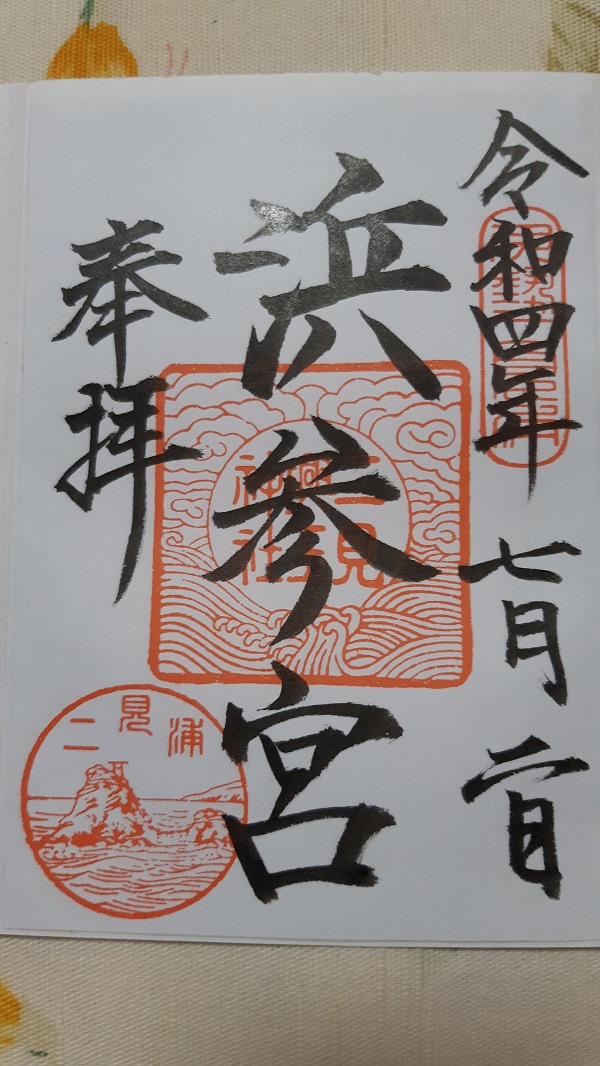 令和四年 七月 二日
浜参宮
二見興玉神社
奉拝
二見浦